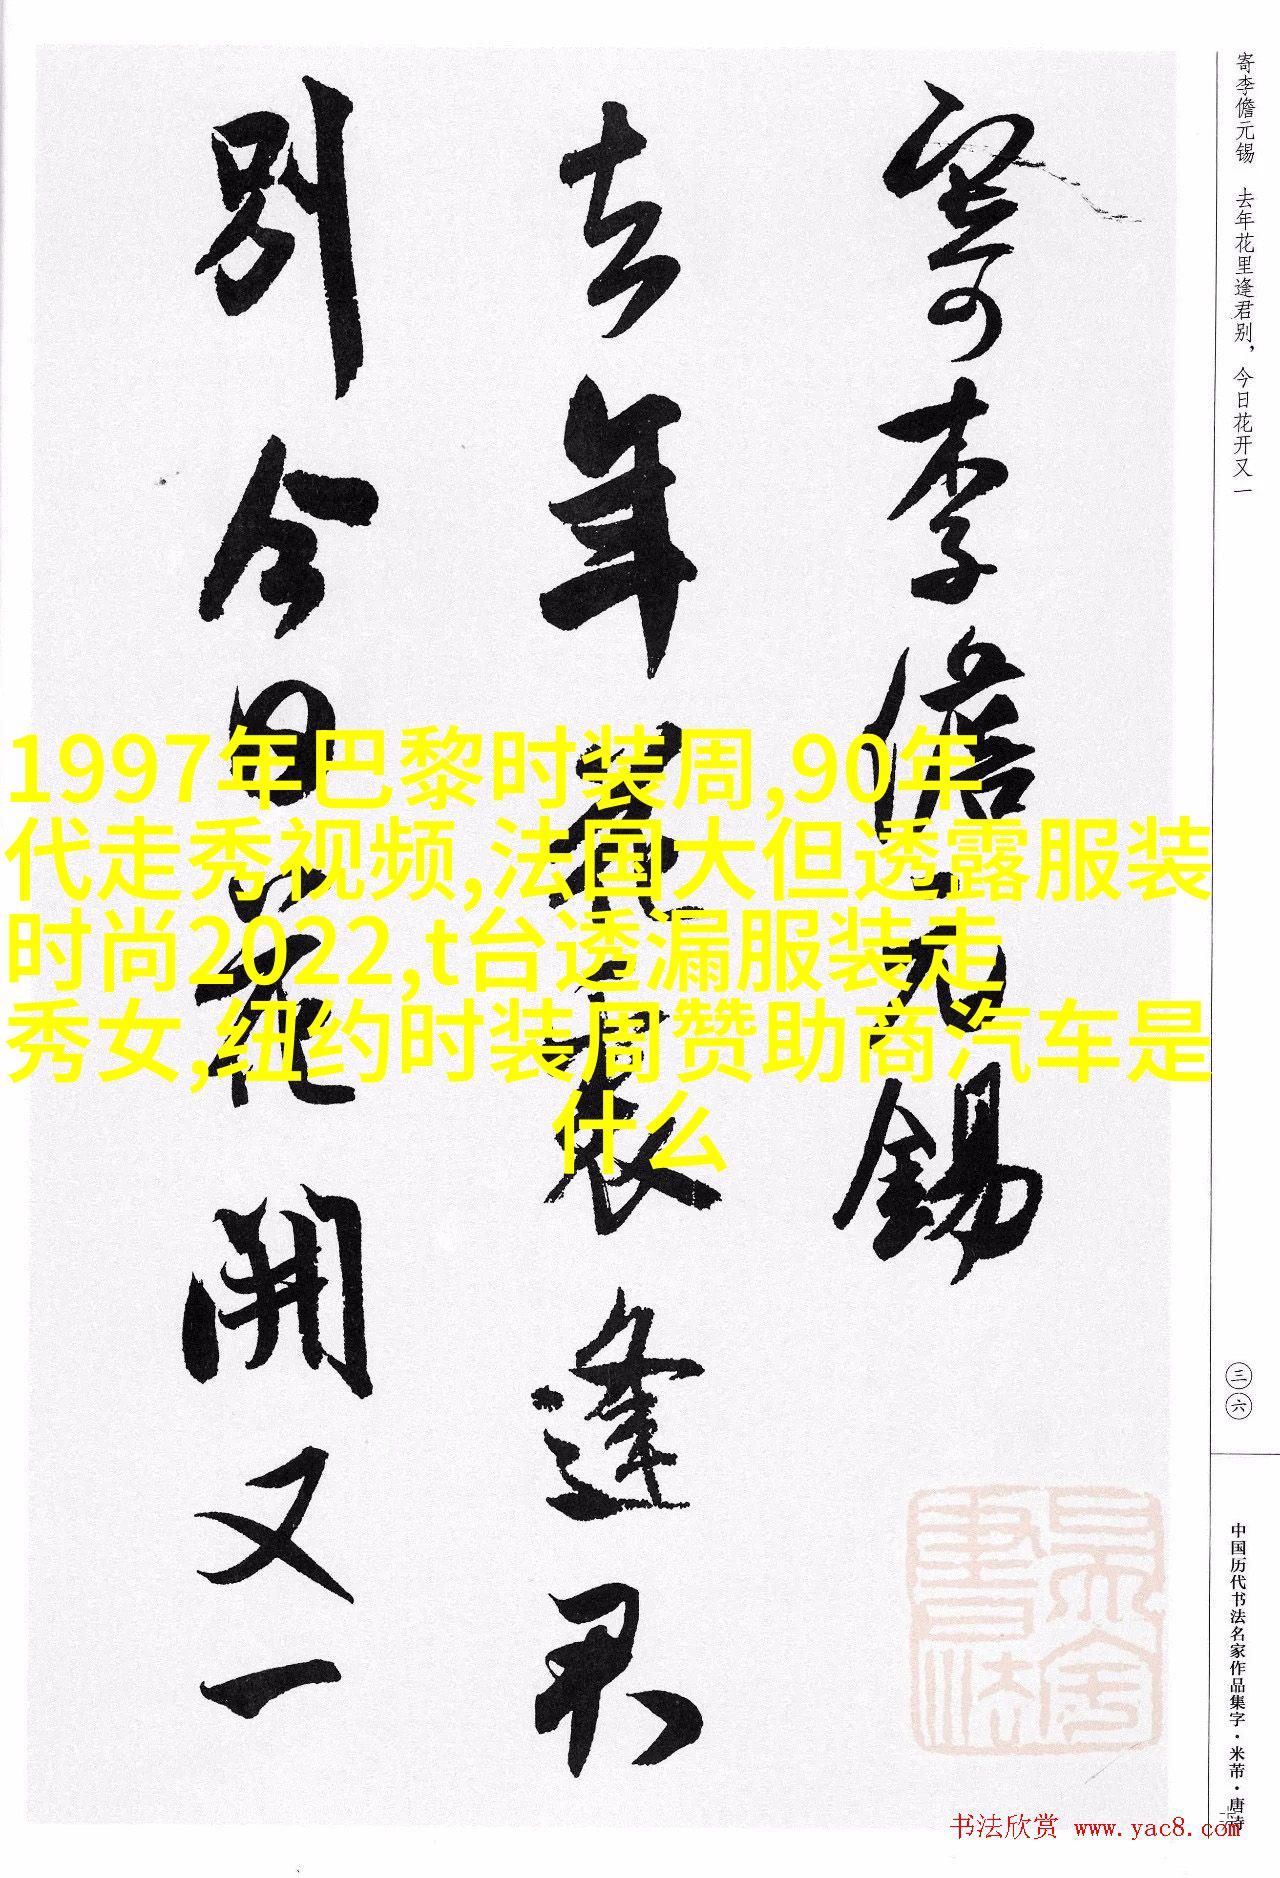 寄李儋元锡　去年花里逢君别，今日花开又一
寄李儋元錫
去年花裏逢君
別今日花開又一
1997年巴黎时装周,90年
代走秀视频,法国大但透露服装
时尚2022,t台透漏服装走
秀女,纽约时装周赞助商汽车是
什么
三六
中国历代书法名家作品集字·米芾·唐诗
书法欣赏 www.yac8.com